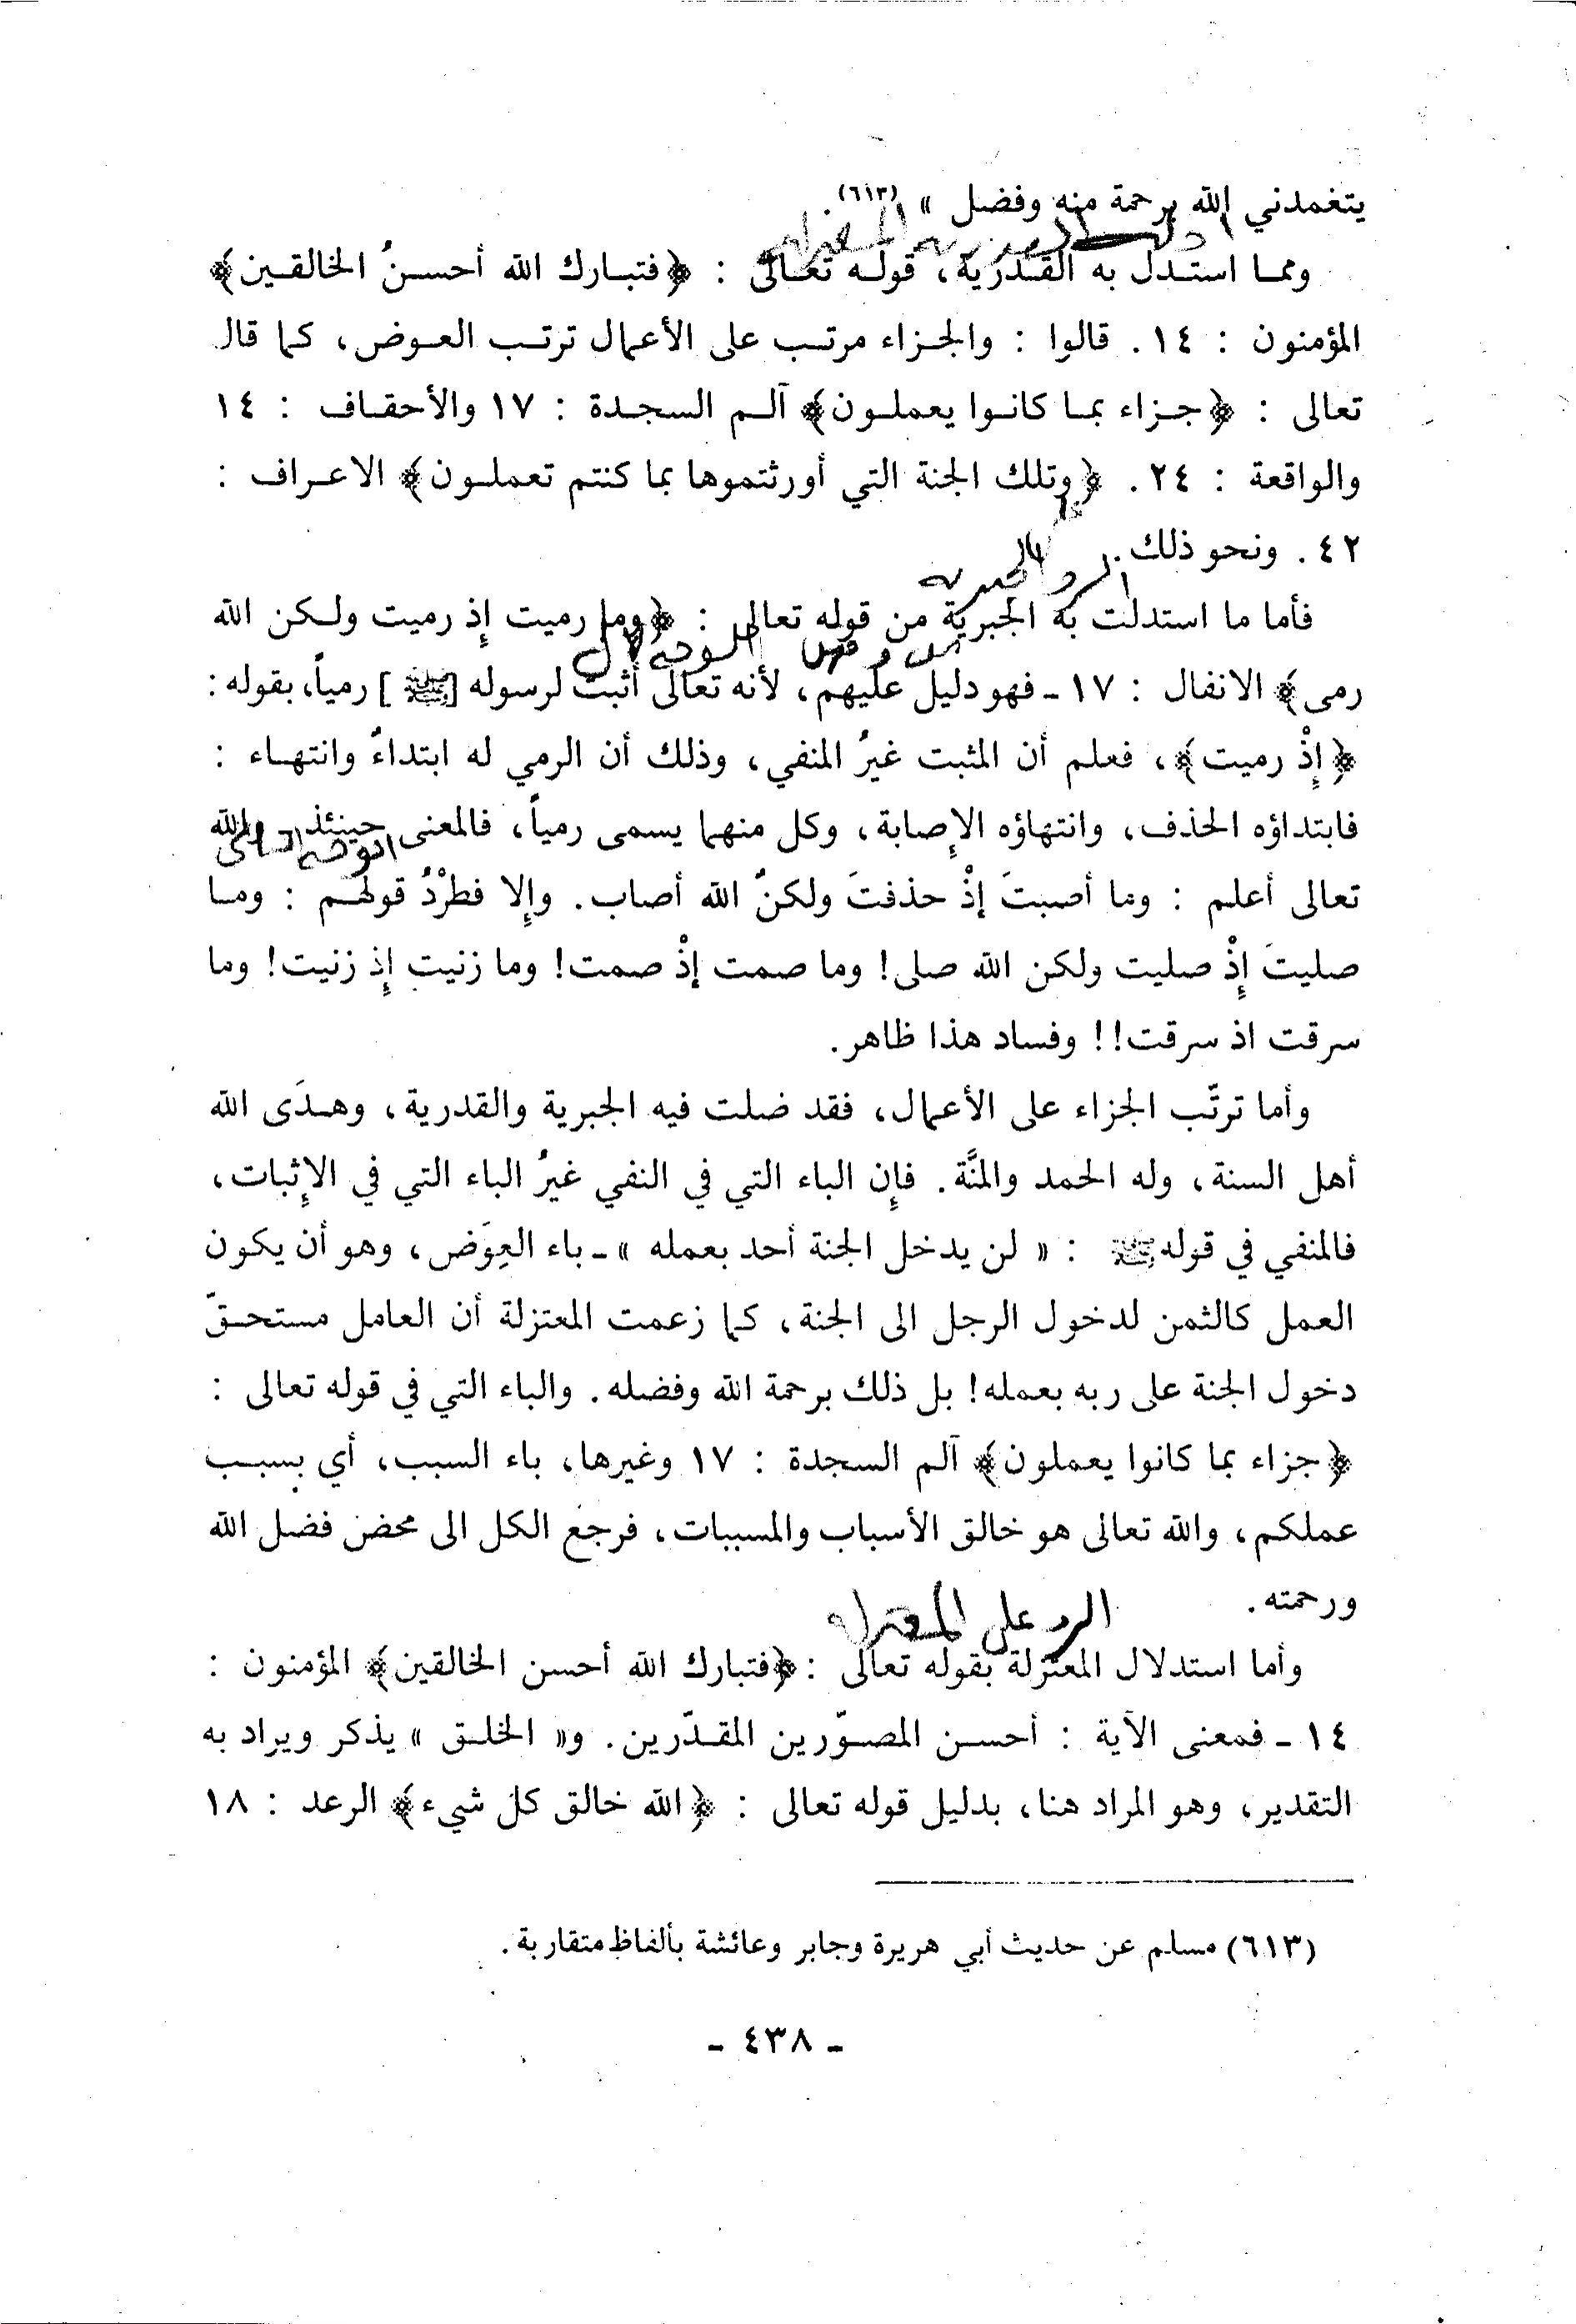 يتغمدني الله برحمة منه وفضل » (٦١٣).
ومما استدل به القدرية، قوله تعالى : ﴿فتبارك الله أحسنُ الخالقين﴾
المؤمنون : ١٤. قالوا : والجزاء مرتب على الأعمال ترتب العوض، كما قال
تعالى : ﴿جزاء بما كانوا يعملون﴾ آلم السجدة : ١٧ والأحقاف : ١٤
والواقعة : ٢٤. ﴿وتلك الجنة التي أورثتموها بما كنتم تعملون﴾ الاعراف :
٤٢. ونحو ذلك.
الرد الجبرية
فأما ما استدلت به الجبرية من قوله تعالى : ﴿وما رميت إذ رميت ولكن الله
رمى﴾ الانفال : ١٧ ـ فهو دليل عليهم، لأنه تعالى أثبت لرسوله [ﷺ] رمياً، بقوله :
﴿إِذْ رميت﴾، فعلم أن المثبت غيرُ المنفي، وذلك أن الرمي له ابتداءً وانتهاء :
فابتداؤه الحذف، وانتهاؤه الإصابة، وكل منهما يسمى رمياً، فالمعنى حينئذ ـ والله
تعالى أعلم : وما أصبتَ إذْ حذفتَ ولكنّ الله أصاب. وإلا فطرْدُ قولهم : وما
صليتَ إِذْ صليت ولكن الله صلى! وما صمت إذْ صمت! وما زنيت إِذ زنيت! وما
سرقت اذ سرقت!! وفساد هذا ظاهر.
وأما ترتّب الجزاء على الأعمال، فقد ضلت فيه الجبرية والقدرية، وهدَى الله
أهل السنة، وله الحمد والمنَّة. فإن الباء التي في النفي غيرُ الباء التي في الإثبات،
فالمنفي في قوله ﷺ : « لن يدخل الجنة أحد بعمله » ـ باء العِوَض، وهو أن يكون
العمل كالثمن لدخول الرجل الى الجنة، كما زعمت المعتزلة أن العامل مستحقّ
دخول الجنة على ربه بعمله! بل ذلك برحمة الله وفضله. والباء التي في قوله تعالى :
﴿جزاء بما كانوا يعملون﴾ آلم السجدة : ١٧ وغيرها، باء السبب، أي بسبب
عملكم، والله تعالى هو خالق الأسباب والمسببات، فرجع الكل الى محض فضل الله
ورحمته.
الرد على المعتزلة
وأما استدلال المعتزلة بقوله تعالى : ﴿فتبارك الله أحسن الخالقين﴾ المؤمنون :
١٤ ـ فمعنى الآية : أحسن المصوّرين المقدّرين. و« الخلق » يذكر ويراد به
التقدير، وهو المراد هنا، بدليل قوله تعالى : ﴿الله خالق كل شيء﴾ الرعد : ١٨
(٦١٣) مسلم عن حديث أبي هريرة وجابر وعائشة بألفاظ متقاربة.
ـ ٤٣٨ ـ